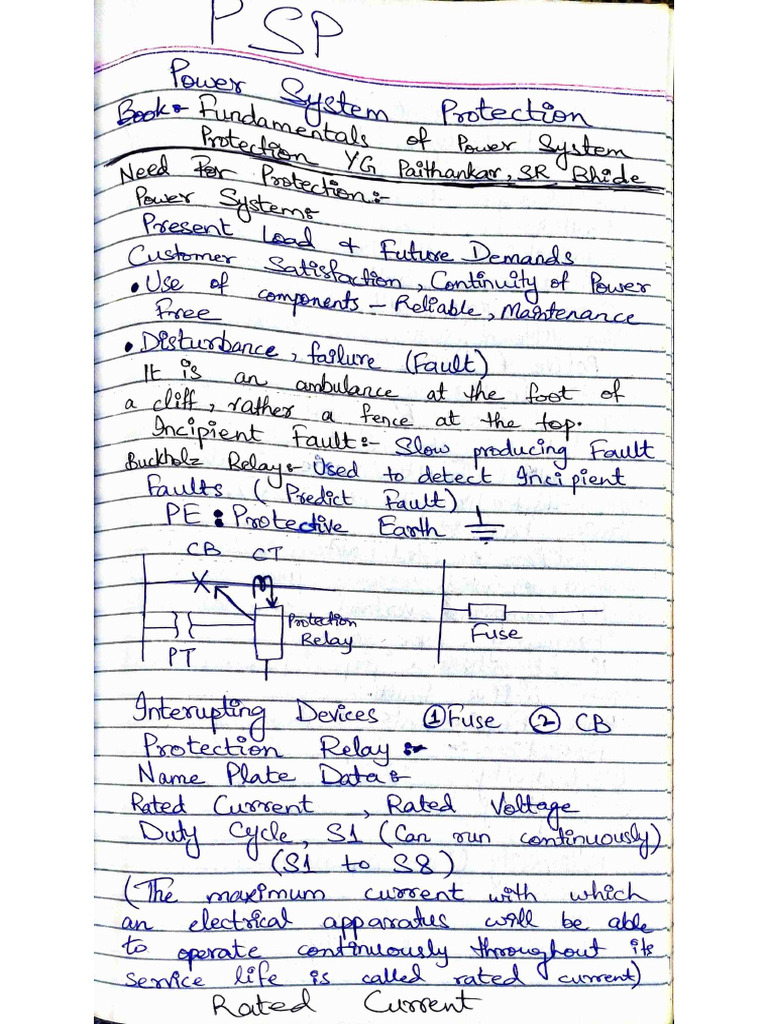 PSP
Power System Protection
Book:- Fundamentals of Power System
Protection YG Paithankar, SR Bhide
Need For Protection:-
Power System:-
Present Load & Future Demands
Customer Satisfaction, Continuity of Power
• Use of components - Reliable, Maintenance
Free
• Disturbance, failure (Fault)
It is an ambulance at the foot of
a cliff, rather a fence at the top.
Incipient Fault:- Slow producing Fault
Buckholz Relay:- Used to detect Incipient
Faults (Predict Fault)
PE: Protective Earth
CB CT
Protection
Relay
PT
Fuse
Interupting Devices ① Fuse ② CB
Protection Relay :-
Name Plate Data:-
Rated Current, Rated Voltage
Duty Cycle, S1 (Can run continuously)
(S1 to S8)
(The maximum current with which
an electrical apparatus will be able
to operate continuously throughout its
service life is called rated current)
Rated Current